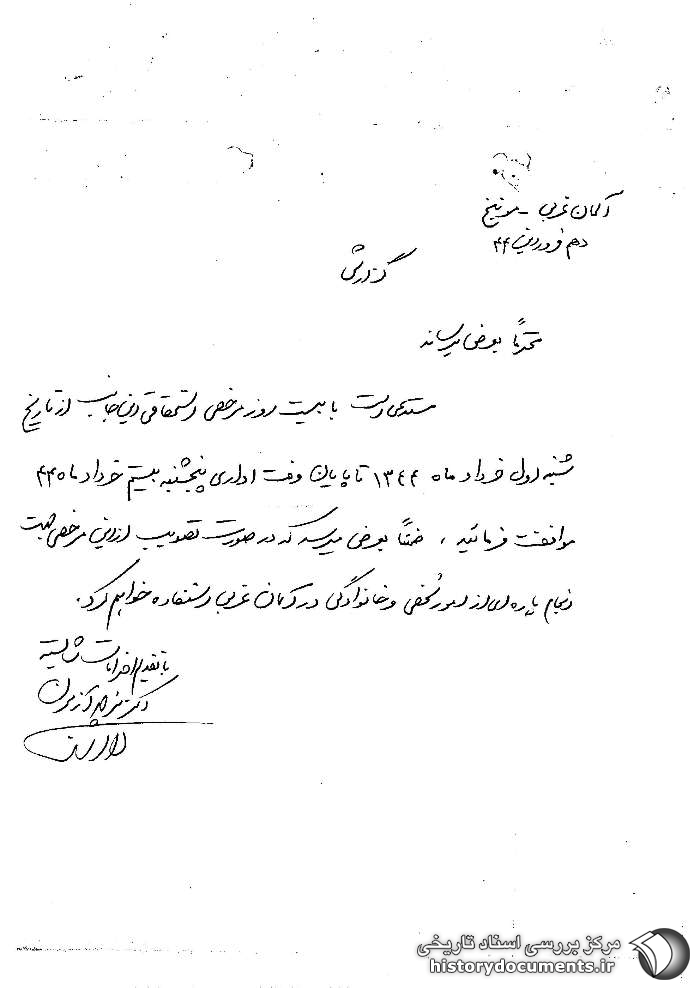 آلمان غربی - مونیخ
دهم فروردین ۴۴
گزارش
محترماً بعرض میرساند
مستدعی است با بیست روز مرخصی استحقاقی اینجانب از تاریخ
شنبه اول خرداد ماه ۱۳۴۴ تا پایان وقت اداری پنجشنبه بیستم خرداد ماه ۴۴
موافقت فرمائید ، ضمناً بعرض میرسد که در صورت تصویب از این مرخصی جهت
انجام پاره‌ای از امور شخصی و خانوادگی در آلمان غربی استفاده خواهم کرد.
با تقدیم احترامات شایسته
دکتر
مرکز بررسی اسناد تاریخی
historydocuments.ir